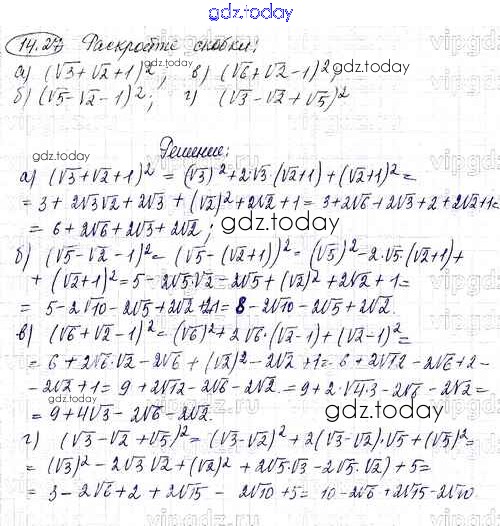 gdz.today
14.27 Раскройте скобки:
а) (√3+√2+1)²; в) (√6+√2-1)²;
б) (√5-√2-1)²; г) (√3-√2+√5)²
gdz.today
gdz.today
Решение:
gdz.today
а) (√3+√2+1)² = (√3)²+2·√3·(√2+1)+(√2+1)²=
= 3+2√3√2+2√3+(√2)²+2√2+1= 3+2√6+2√3+2+2√2+1=
= 6+2√6+2√3+2√2;
gdz.today
б) (√5-√2-1)²= (√5-(√2+1))²= (√5)²-2·√5·(√2+1)+
+(√2+1)²=5-2√5·√2-2√5+(√2)²+2√2+1=
= 5-2√10-2√5+2√2+2+1= 8-2√10-2√5+2√2.
в) (√6+√2-1)²=(√6)²+2√6·(√2-1)+(√2-1)²=
= 6+2√6·√2-2√6+(√2)²-2√2+1= 6+2√12-2√6+2-
-2√2+1= 9+2√12-2√6-2√2=9+2·√4·3-2√6-2√2=
= 9+4√3-2√6-2√2.
gdz.today
г) (√3-√2+√5)²=(√3-√2)²+2(√3-√2)·√5+(√5)²=
gdz.today
= (√3)²-2√3√2+(√2)²+2√5·√3-2√5·√2)+5=
= 3-2√6+2+2√15-2√10+5= 10-2√6+2√15-2√10.